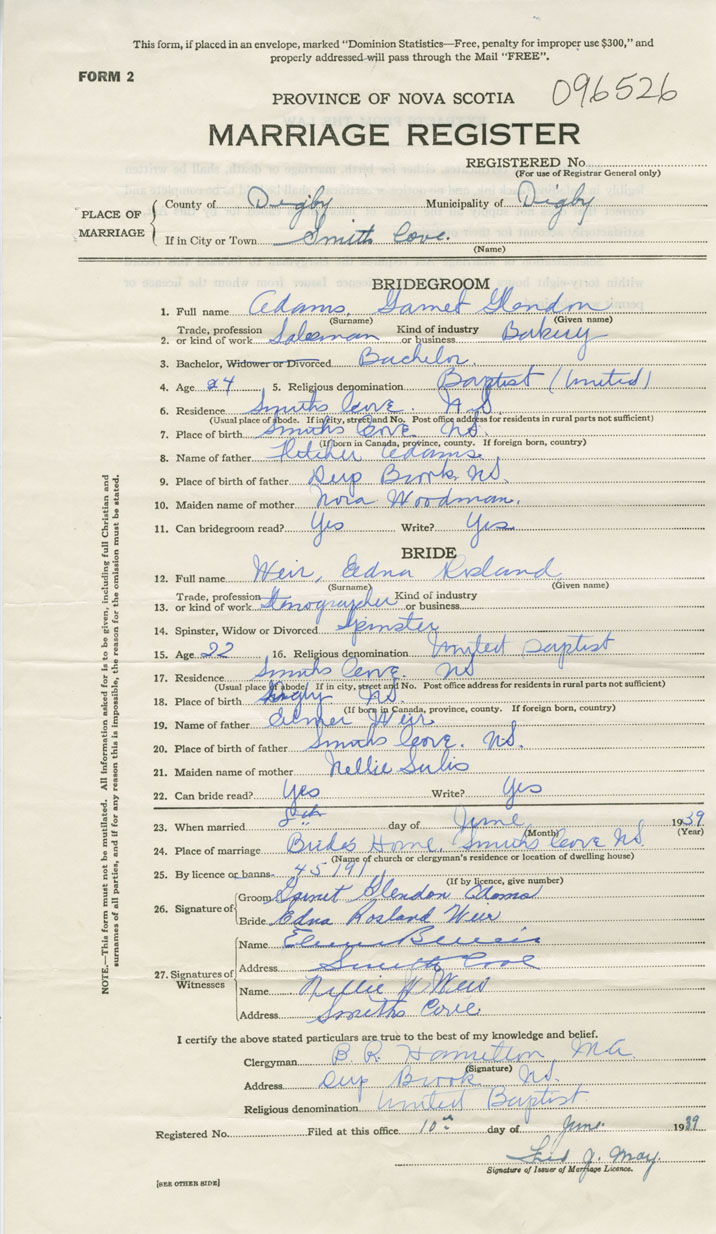 This form, if placed in an envelope, marked "Dominion Statistics—Free, penalty for improper use $300," and
properly addressed will pass through the Mail "FREE".
FORM 2
PROVINCE OF NOVA SCOTIA 096526
MARRIAGE REGISTER
REGISTERED No
(For use of Registrar General only)
PLACE OF MARRIAGE
County of Digby Municipality of Digby
If in City or Town Smiths Cove.
(Name)
BRIDEGROOM
1. Full name Adams, Garnet Glendon
(Surname) (Given name)
2. Trade, profession or kind of work Salesman Kind of industry or business Bakery
3. Bachelor, Widower or Divorced Bachelor.
4. Age 24 5. Religious denomination Baptist (United)
6. Residence Smiths Cove. N.S.
(Usual place of abode. If in city, street and No. Post office address for residents in rural parts not sufficient)
7. Place of birth Smiths Cove NS.
(If born in Canada, province, county. If foreign born, country)
8. Name of father Fletcher Adams.
9. Place of birth of father Deep Brook, NS.
10. Maiden name of mother Nora Woodman.
11. Can bridegroom read? Yes Write? Yes.
BRIDE
12. Full name Weir, Edna Rosland
(Surname) (Given name)
13. Trade, profession or kind of work Stenographer Kind of industry or business
14. Spinster, Widow or Divorced Spinster
15. Age 22 16. Religious denomination United Baptist
17. Residence Smiths Cove. NS
(Usual place of abode/ If in city, street and No. Post office address for residents in rural parts not sufficient)
18. Place of birth Digby NS.
(If born in Canada, province, county. If foreign born, country)
19. Name of father Elmer Weir
20. Place of birth of father Smiths Cove. NS.
21. Maiden name of mother Nellie Sulis
22. Can bride read? Yes Write? Yes
23. When married day of June 1939
(Month) (Year)
24. Place of marriage Brides Home, Smiths Cove NS
(Name of church or clergyman's residence or location of dwelling house)
25. By licence or banns 45191
(If by licence, give number)
26. Signature of
Groom Garnet Glendon Adams
Bride Edna Rosland Weir
27. Signatures of Witnesses
Name
Address Smiths Cove
Name Nellie W Weir
Address Smiths Cove
I certify the above stated particulars are true to the best of my knowledge and belief.
Clergyman B. R. Hamilton, MA
(Signature)
Address Deep Brook NS.
Religious denomination United Baptist
Registered No. Filed at this office 10th day of June. 1939
Fred J. May.
Signature of Issuer of Marriage Licence.
[SEE OTHER SIDE]
NOTE.—This form must not be mutilated. All information asked for is to be given, including full Christian and
surnames of all parties, and if for any reason this is impossible, the reason for the omission must be stated.